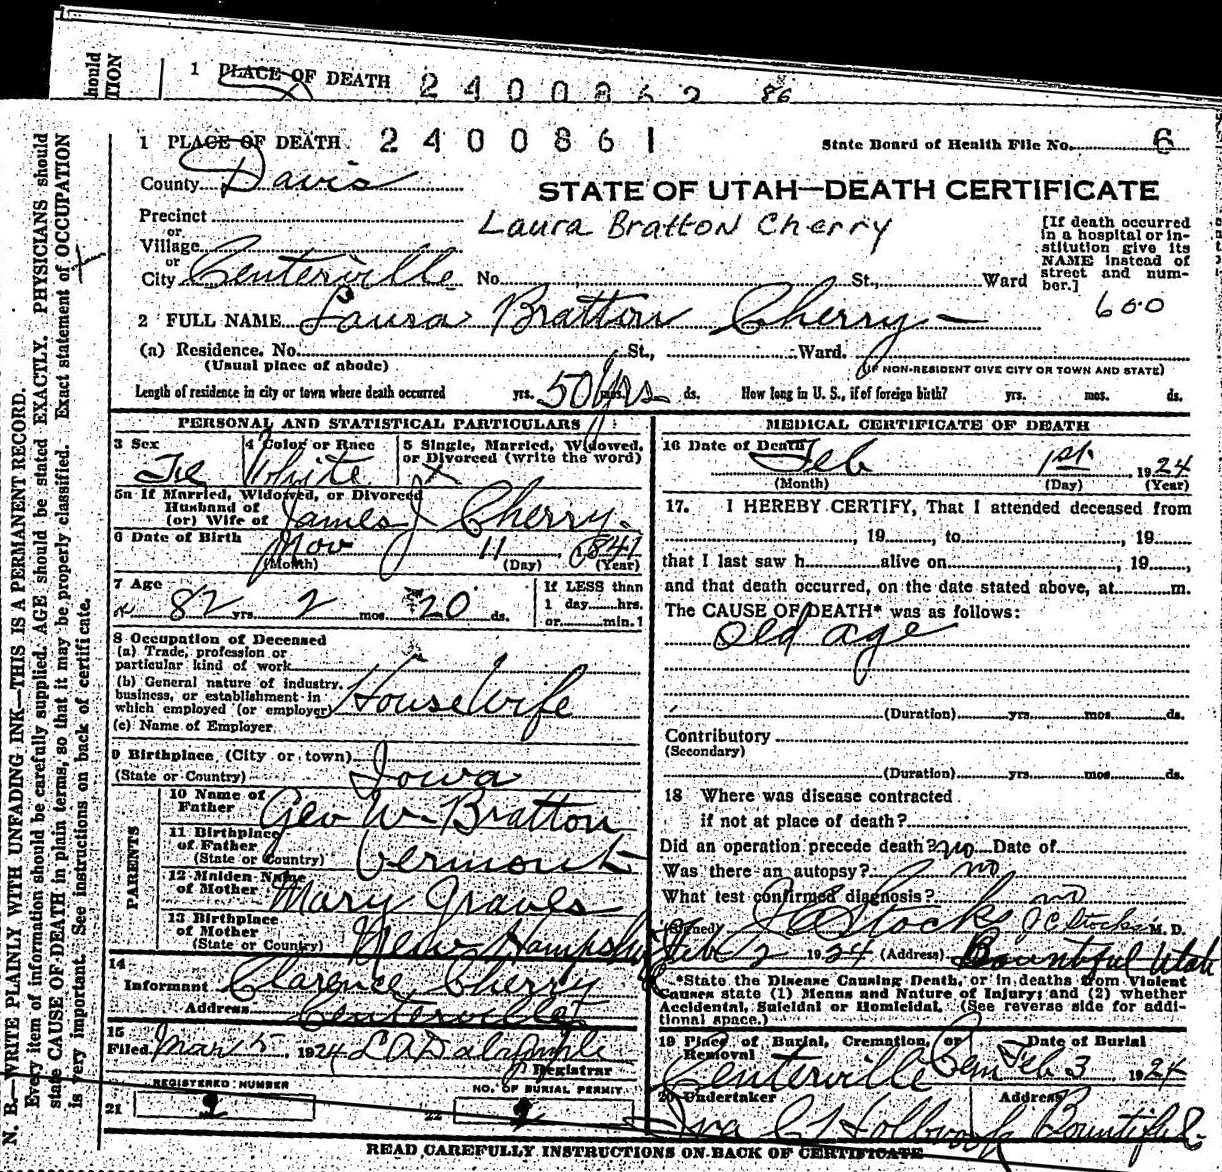 1 PLACE OF DEATH 2400862 86
1 PLACE OF DEATH 2400861 State Board of Health File No. 6
County Davis
STATE OF UTAH—DEATH CERTIFICATE
Precinct
or
Village
Laura Bratton Cherry
[If death occurred in a hospital or institution give its NAME instead of street and number.]
or
City Centerville No. St., Ward
600
2 FULL NAME Laura Bratton Cherry
(a) Residence. No. St., Ward.
(Usual place of abode) (IF NON-RESIDENT GIVE CITY OR TOWN AND STATE)
Length of residence in city or town where death occurred yrs. 50 yrs mos. ds. How long in U. S., if of foreign birth? yrs. mos. ds.
PERSONAL AND STATISTICAL PARTICULARS
3 Sex 4 Color or Race 5 Single, Married, Widowed,
or Divorced (write the word)
Fe White X
5a If Married, Widowed, or Divorced
Husband of
(or) Wife of James J Cherry.
6 Date of Birth Nov 11 1841
(Month) (Day) (Year)
7 Age 82 yrs. 2 mos. 20 ds.
If LESS than
1 day hrs.
or min.1
8 Occupation of Deceased
(a) Trade, profession or
particular kind of work
(b) General nature of industry,
business, or establishment in
which employed (or employer) Housewife
(c) Name of Employer
9 Birthplace (City or town)
(State or Country) Iowa
PARENTS
10 Name of
Father Geo W. Bratton
11 Birthplace
of Father
(State or Country) Vermont
12 Maiden Name
of Mother Mary Graves
13 Birthplace
of Mother
(State or Country) New Hampshire
14
Informant Clarence Cherry
Address Centerville
15
Filed Mar 5 1924 L A Dalrymple
Registrar
REGISTERED NUMBER NO. OF BURIAL PERMIT
21 2 22 2
MEDICAL CERTIFICATE OF DEATH
16 Date of Death
Feb 1st 1924
(Month) (Day) (Year)
17. I HEREBY CERTIFY, That I attended deceased from
, 19 , to , 19
that I last saw h alive on , 19 ,
and that death occurred, on the date stated above, at m.
The CAUSE OF DEATH* was as follows:
old age
(Duration) yrs. mos. ds.
Contributory
(Secondary)
(Duration) yrs. mos. ds.
18 Where was disease contracted
if not at place of death?
Did an operation precede death? no Date of
Was there an autopsy? no
What test confirmed diagnosis? no
(Signed) Stocks J C Stocks M. D.
Feb 2 1924 (Address) Bountiful Utah
*State the Disease Causing Death, or in deaths from Violent
Causes state (1) Means and Nature of Injury; and (2) whether
Accidental, Suicidal or Homicidal. (See reverse side for addi-
tional space.)
19 Place of Burial, Cremation, or
Removal Date of Burial
Centerville Cem Feb 3 1924
20 Undertaker Address
Holbrook Bountiful
READ CAREFULLY INSTRUCTIONS ON BACK OF CERTIFICATE
N. B.—WRITE PLAINLY WITH UNFADING INK—THIS IS A PERMANENT RECORD.
Every item of information should be carefully supplied. AGE should be stated EXACTLY. PHYSICIANS should
state CAUSE OF DEATH in plain terms, so that it may be properly classified. Exact statement of OCCUPATION
is very important. See instructions on back of certificate.